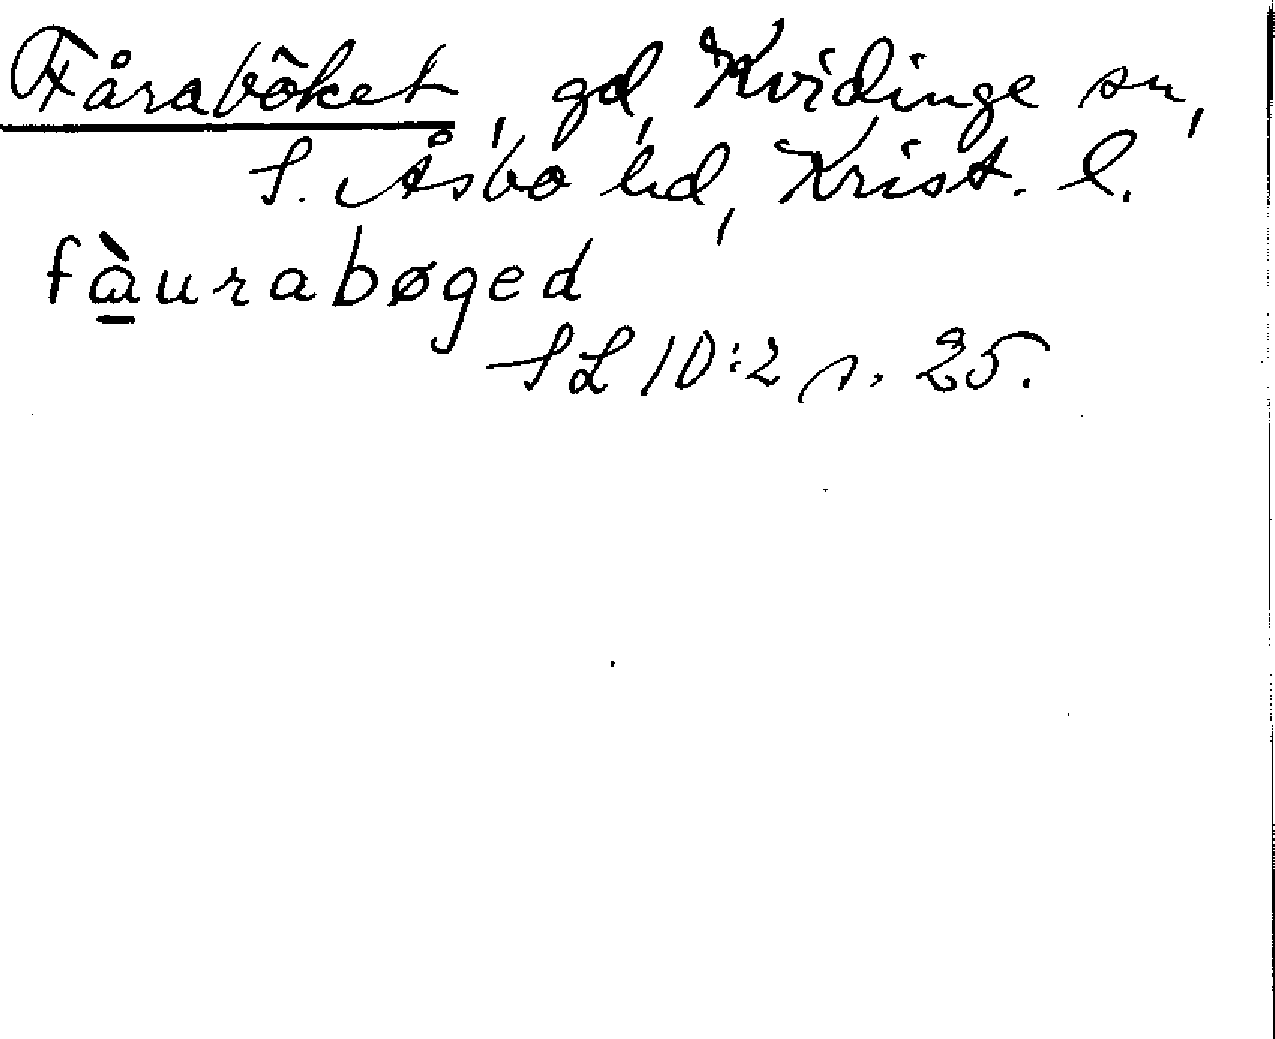 Fåraböket, gd, Kvidinge sn,
S. Åsbo hd, Krist. l.
fàurabøged
SL 10:2 s. 25.